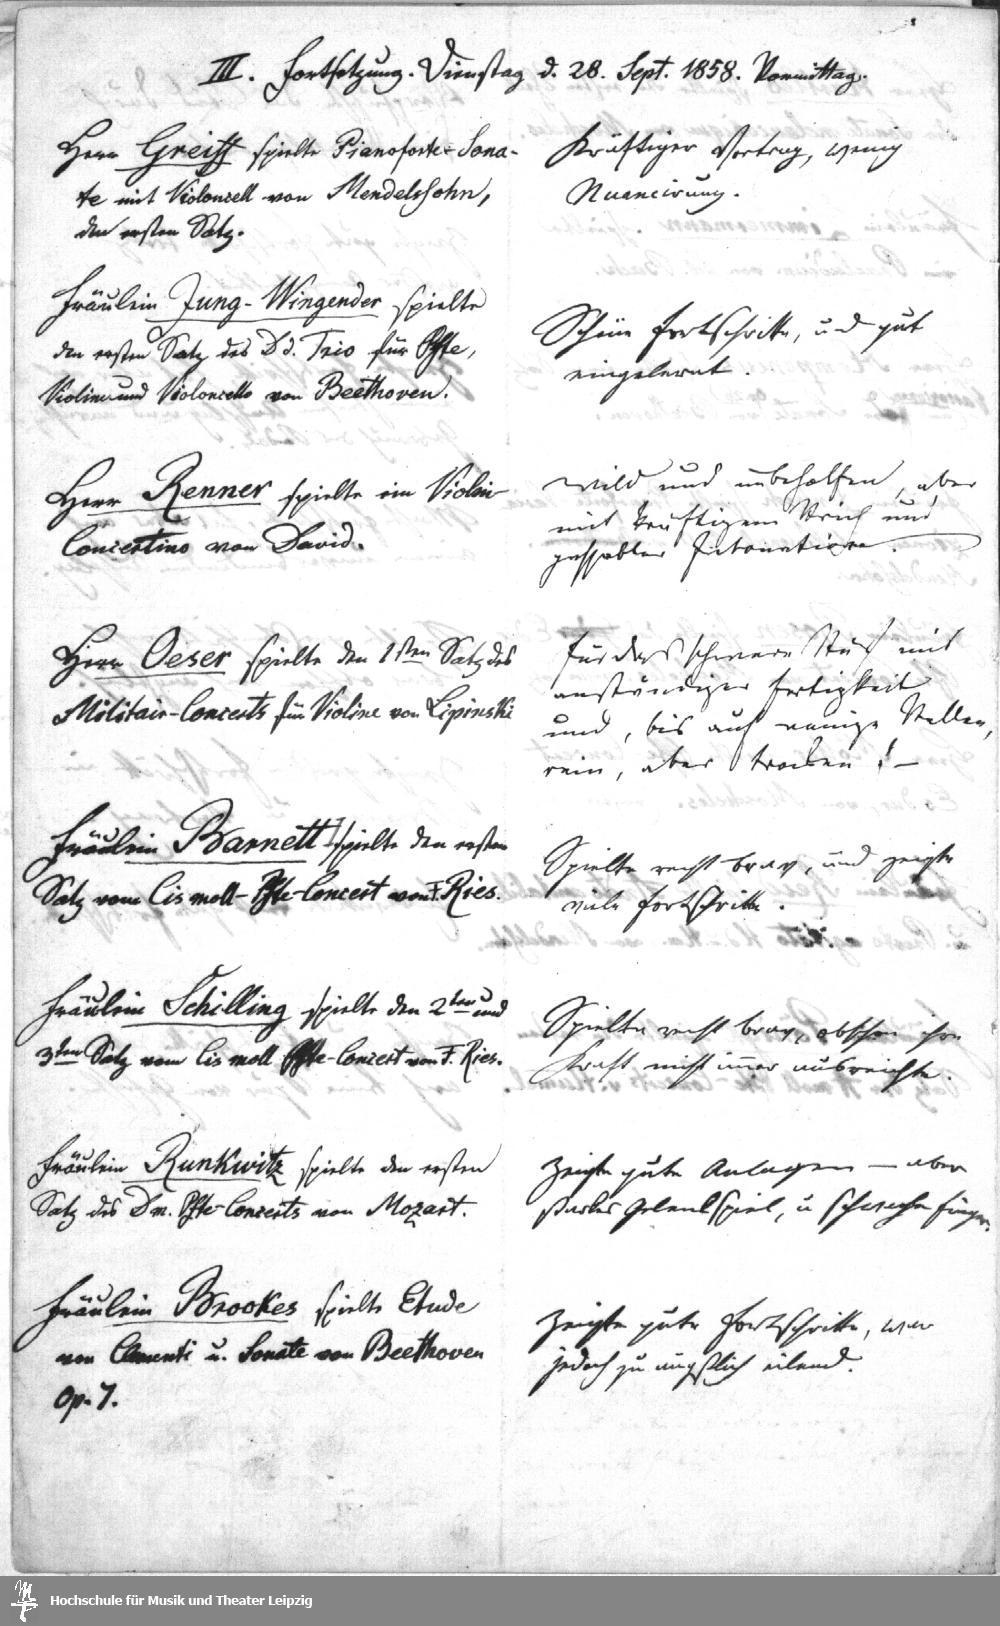 III. Fortsetzung. Dienstag d. 28. Sept. 1858. Vormittag.
Herr Greiff spielte Pianoforte-Sona-
te mit Violoncell von Mendelssohn,
den ersten Satz.
Kräftiger Vortrag, wenig
Nuancirung.
Fräulein Jung-Wingender spielte
den ersten Satz des D d. Trio für Pfte,
Violine und Violoncello von Beethoven.
Schöne Fortschritte, und gut
eingelernt.
Herr Renner spielte ein Violin-
Concertino von David.
wild und unbeholfen, aber
mit kräftigem Strich und
Intonation.
Herr Oeser spielte den 1sten Satz des
Militair-Concerts für Violine von Lipinski
für das schwere Stück mit
anständiger Fertigkeit
und, bis auf wenige Stellen,
rein, aber trocken! –
Fräulein Barnett spielte den ersten
Satz vom Cis moll-Pfte-Concert von F. Ries.
Spielte recht brav, und zeigte
viele Fortschritte.
Fräulein Schilling spielte den 2ten und
3ten Satz vom Cis moll Pfte-Concert von F. Ries.
Spielte recht brav, obschon ihre
Kraft nicht immer ausreichte.
Fräulein Runkwitz spielte den ersten
Satz des D m. Pfte-Concerts von Mozart.
Zeigte gute Anlagen – aber
starkes Gelenkspiel, u schwache Finger.
Fräulein Brookes spielte Etude
von Clementi u. Sonate von Beethoven
Op. 7.
Zeigte gute Fortschritte, war
jedoch zu ängstlich eilend.
Hochschule für Musik und Theater Leipzig